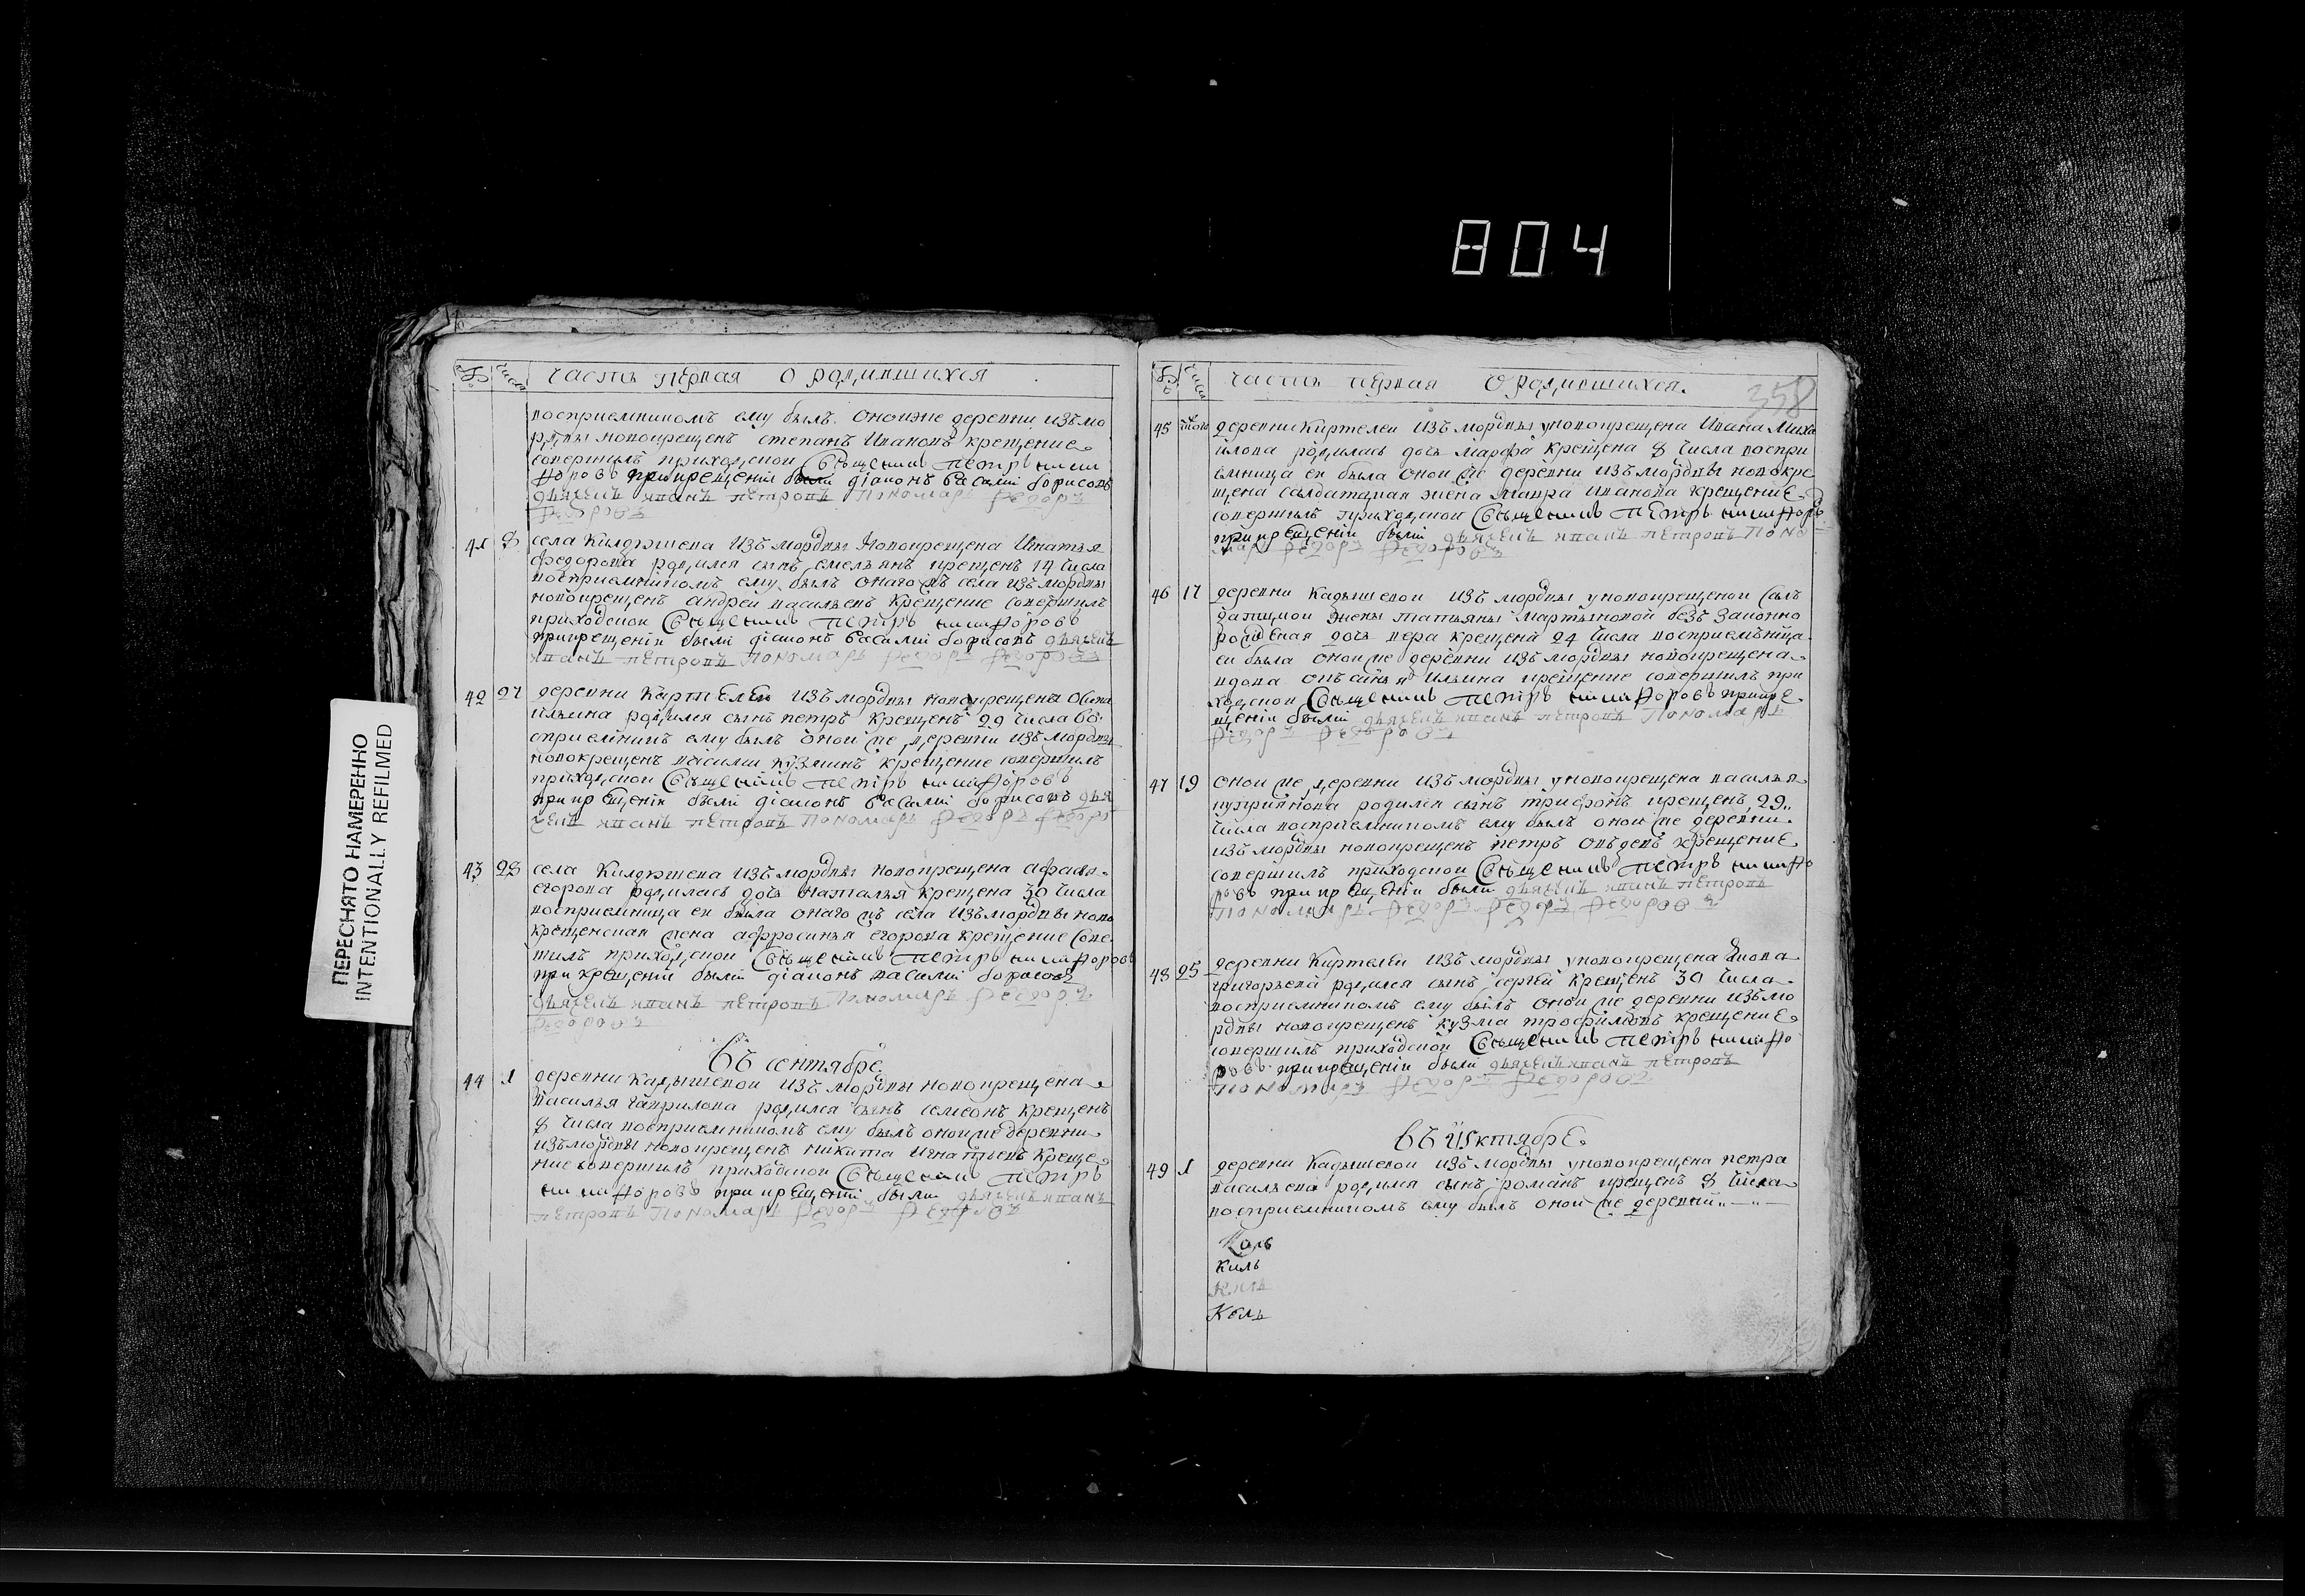 804
ПЕРЕСНЯТО НАМЕРЕННО
INTENTIONALLY REFILMED
часть первая о родившихся
восприемникомъ ему былъ оной же деревни изъ мо
рдвы новокрещенъ степанъ Ивановъ крещение
совершилъ приходской Священникъ Петръ Никифоровъ
при крещении были діаконъ Василій борисовъ
дьячекъ иванъ петровъ Пономарь Федоръ
Федоровъ
41 8 села Килдюшева Изъ мордвы Новокрещена Игнатья
федорова родился сынъ емельянъ крещенъ 14 числа
восприемникомъ ему былъ онаго жъ села изъ мордвы
новокрещенъ андрей васильевъ Крещение совершилъ
приходской Священникъ Петръ Никифоровъ
при крещеніи были діаконъ Василій борисовъ дьячекъ
иванъ петровъ Пономарь Федоръ Федоровъ
42 27 деревни Киртелей изъ мордвы новокрещена
ильина родился сынъ петръ крещенъ 29 числа во
сприемникъ ему былъ оной же деревни изъ мордвы
новокрещенъ василий кузминъ крещение совершилъ
приходской Священникъ Петръ Никифоровъ
при крещеніи были діаконъ Василій борисовъ дья
чекъ иванъ петровъ Пономарь Федоръ Федоръ
43 28 села Килдюшева Изъ мордвы новокрещена
егорова родилась дочь наталья крещена 30 числа
восприемница ей была онаго жъ села Изъ мордвы ново
крещенская жена афросинья егорова крещение сове
шилъ приходской Священникъ Петръ Никифоровъ
при крещении были діаконъ василій борисовъ
дьячекъ иванъ петровъ Пономарь Федоръ
Федоровъ
Въ сентябре
44 1 деревни кадышевой Изъ мордвы новокрещена
василья гаврилова родился сынъ семеонъ крещенъ
8 числа восприемникомъ ему былъ оной же деревни
изъ мордвы новокрещенъ никита Игнатьевъ Креще
ние совершилъ приходской Священникъ Петръ
Никифоровъ при крещеніи были дьячекъ иванъ
петровъ Пономарь Федоръ Федоровъ
часть первая о родившихся
358
45 деревни Киртелей Изъ мордвы у новокрещена Ивана Миха
йлова родилась дочь Марфа крещена 8 числа воспри
емница ей была оной же деревни изъ мордвы новокре
щена салдатская жена Мавра Иванова крещение
совершилъ приходской Священникъ Петръ Никифоро
при крещеніи были дьячекъ иванъ петровъ Поно
марь Федоръ Федоровъ
46 17 деревни Кадышевой изъ мордвы у новокрещеной сал
датцкой жены татьяны Мартыновой безъ законно
рожденая дочь вера крещена 24 числа восприемница
ей была оной же деревни изъ мордвы новокрещена
вдова Ильина крещение совершилъ при
ходской Священникъ Петръ Никифоровъ при кре
щеніи были дьячекъ иванъ петровъ Пономарь
Федоръ Федоровъ
47 19 оной же деревни изъ мордвы у новокрещена василья
куприянова родился сынъ трифонъ крещенъ 29
числа восприемникомъ ему былъ оной же деревни
изъ мордвы новокрещенъ петръ крещение
совершилъ приходской Священникъ Петръ Никифо
ровъ при крещеніи были дьячекъ иванъ петровъ
Пономарь Федоръ Федоръ Федоровъ
48 25 деревни Киртелей Изъ мордвы у новокрещена Якова
григорьева родился сынъ сергей крещенъ 30 числа
восприемникомъ ему былъ оной же деревни изъ мо
рдвы новокрещенъ кузма трофимовъ крещение
совершилъ приходской Священникъ Петръ Никифо
ровъ при крещеніи были дьячекъ иванъ петровъ
Пономарь Федоръ Федоровъ
49 1 деревни Кадышевой изъ мордвы у новокрещена петра
васильева родился сынъ романъ крещенъ 8 числа
восприемникомъ ему былъ оной же деревни
Киль
Кель